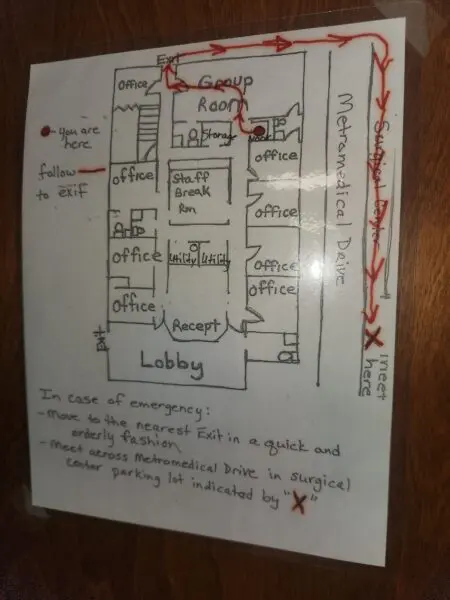 Exit
Office
Group
Room
Storage
You are
here
Follow
to exit
Office
Staff
Break
Rm
Office
Office
Office
Utility
Utility
Office
Office
Office
Recept
Exit
Lobby
Metromedical Drive
Surgical Center
X
meet
here
In case of emergency:
- Move to the nearest Exit in a quick and
orderly fashion
- Meet across Metromedical Drive in surgical
center parking lot indicated by "X"